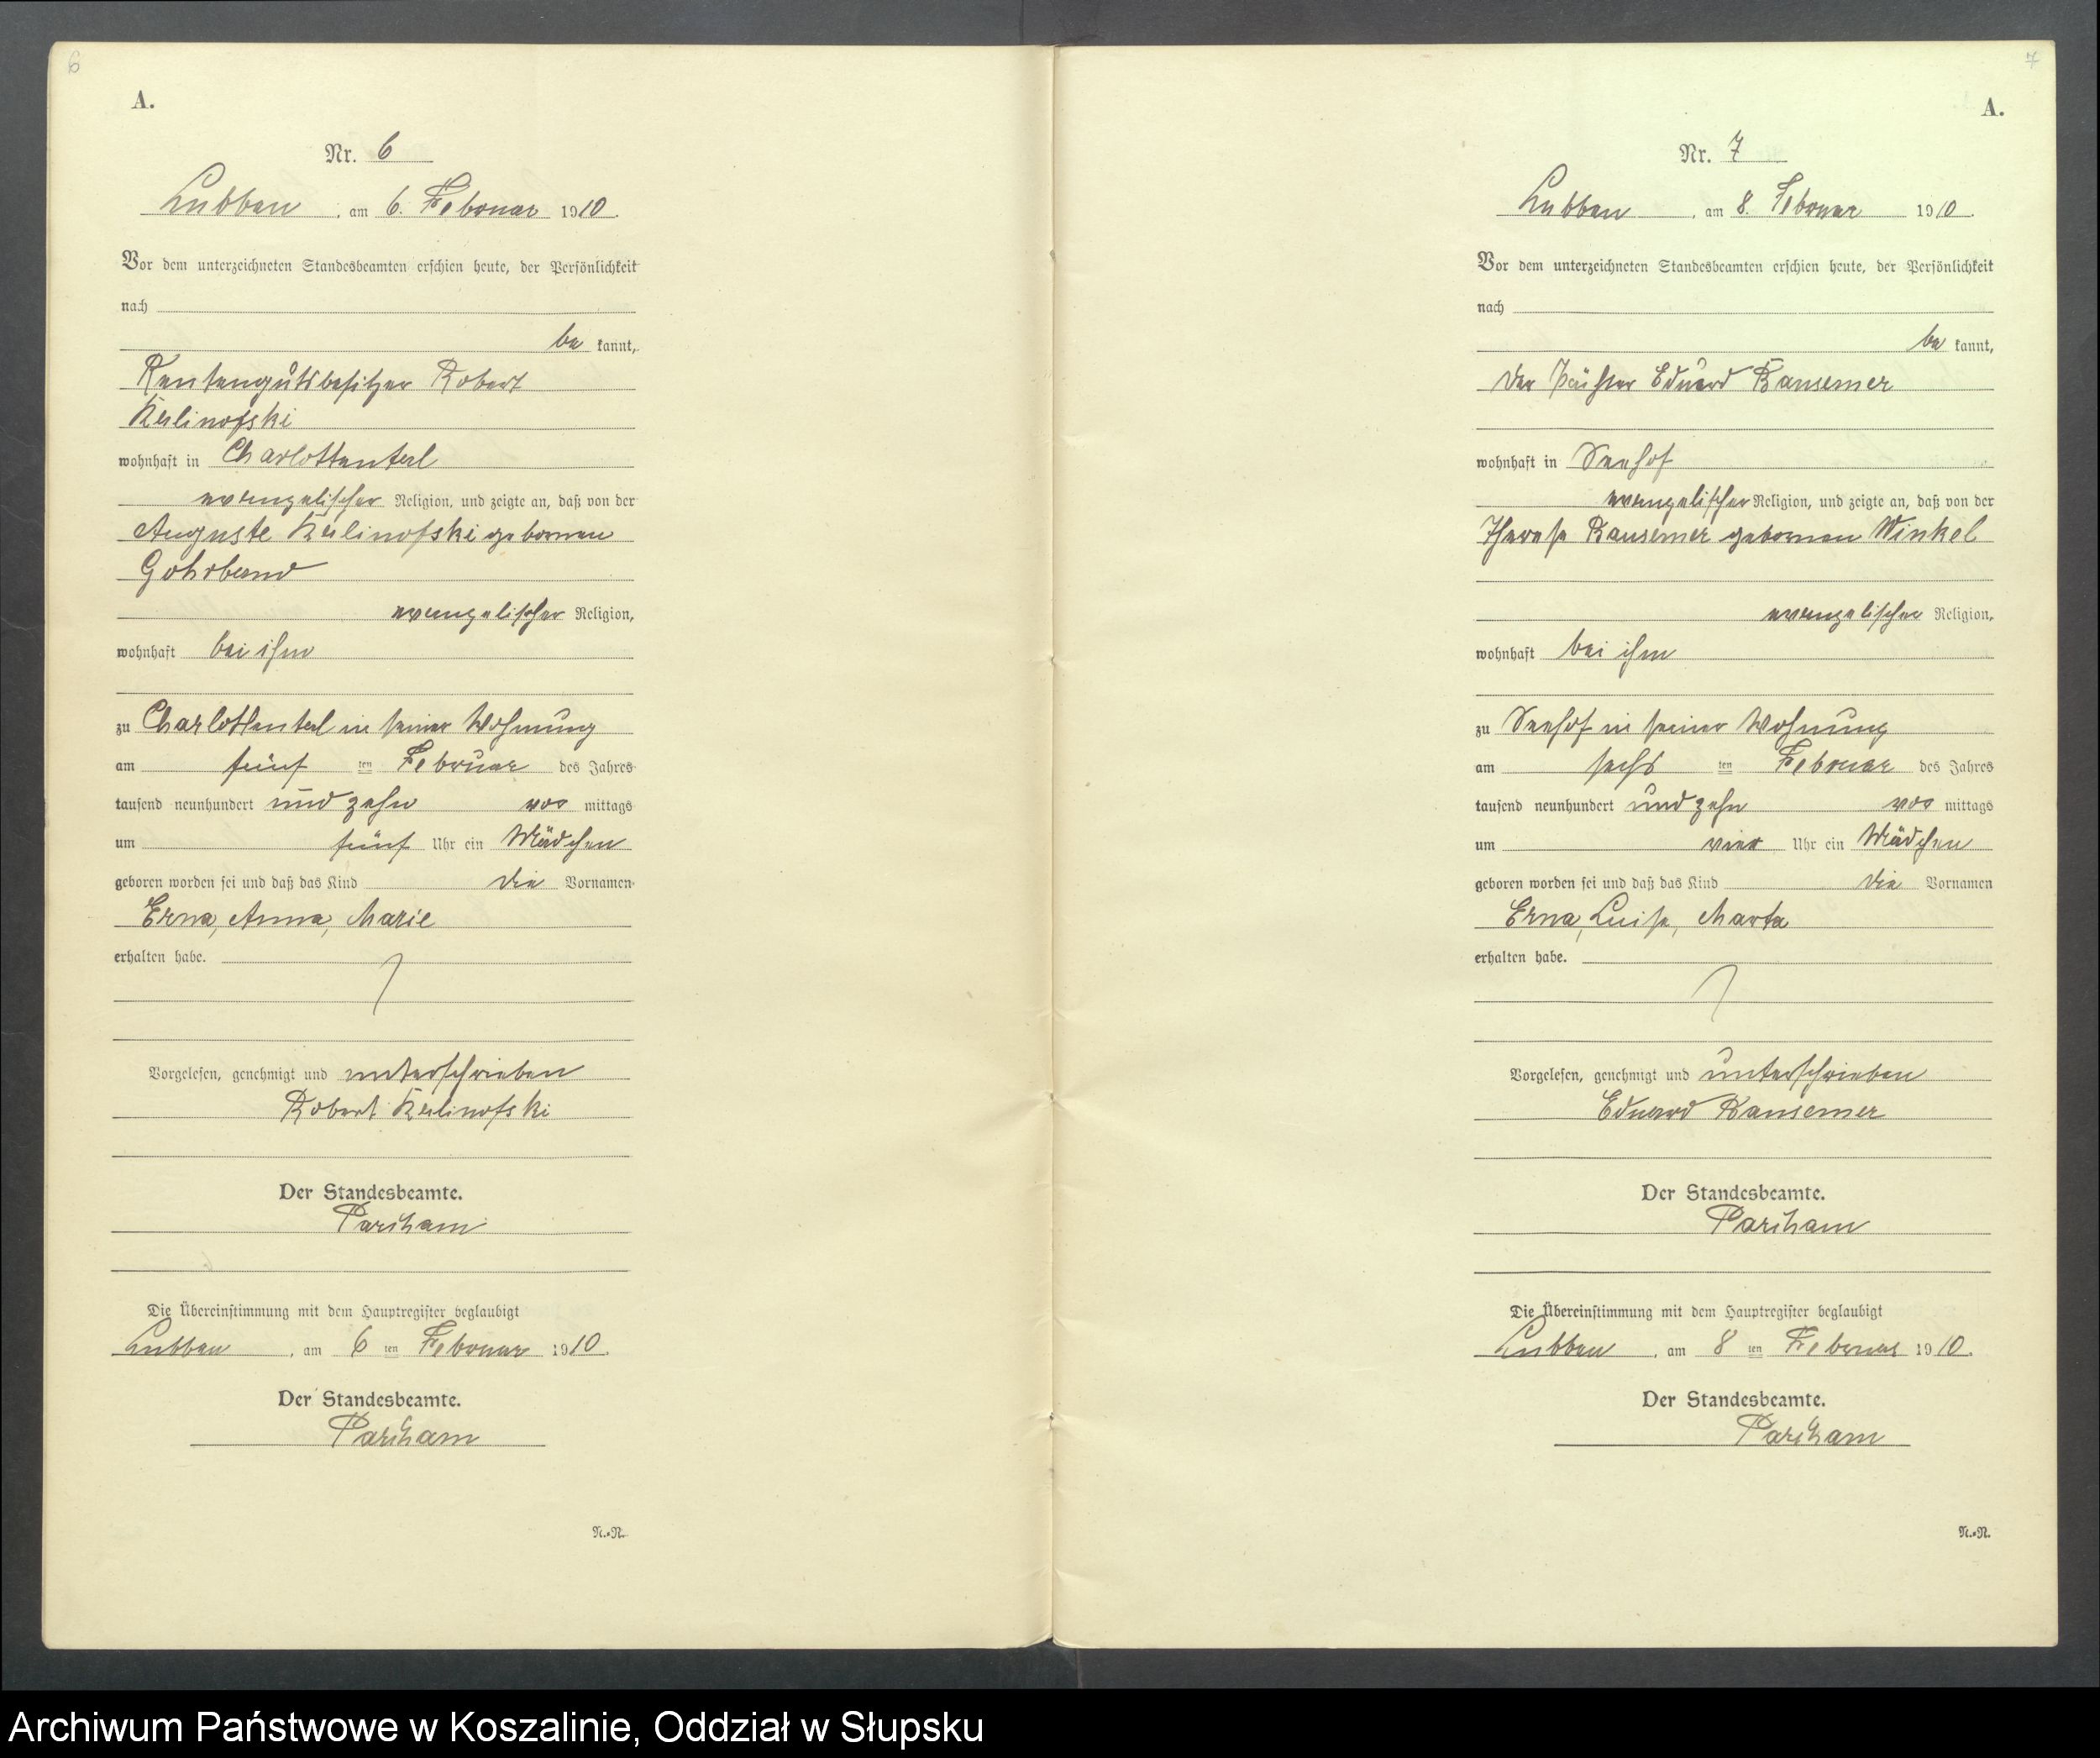 6
A.
Nr. 6
Lubben, am 6. Februar 1910.
Vor dem unterzeichneten Standesbeamten erschien heute, der Persönlichkeit
nach
be kannt,
Rentengutsbesitzer Robert
Kulinofski
wohnhaft in Charlottental
evangelischer Religion, und zeigte an, daß von der
Auguste Kulinofski gebornen
Gohrband
evangelischer Religion,
wohnhaft bei ihm
zu Charlottental in seiner Wohnung
am fünf ten Februar des Jahres
tausend neunhundert und zehn vor mittags
um fünf Uhr ein Mädchen
geboren worden sei und daß das Kind die Vornamen
Erna, Anna, Marie
erhalten habe.
Vorgelesen, genehmigt und unterschrieben
Robert Kulinofski
Der Standesbeamte.
Pariham
Die Übereinstimmung mit dem Hauptregister beglaubigt
Lubben, am 6 ten Februar 1910.
Der Standesbeamte.
Pariham
N.=N.
7
A.
Nr. 7
Lubben, am 8. Februar 1910.
Vor dem unterzeichneten Standesbeamten erschien heute, der Persönlichkeit
nach
be kannt,
der Pächter Eduard Ransemer
wohnhaft in Seehof
evangelischer Religion, und zeigte an, daß von der
Therese Ransemer gebornen Winkel
evangelischer Religion,
wohnhaft bei ihm
zu Seehof in seiner Wohnung
am sechs ten Februar des Jahres
tausend neunhundert und zehn vor mittags
um vier Uhr ein Mädchen
geboren worden sei und daß das Kind die Vornamen
Erna, Luise, Marta
erhalten habe.
Vorgelesen, genehmigt und unterschrieben
Eduard Ransemer
Der Standesbeamte.
Pariham
Die Übereinstimmung mit dem Hauptregister beglaubigt
Lubben, am 8 ten Februar 1910.
Der Standesbeamte.
Pariham
N.=N.
Archiwum Państwowe w Koszalinie, Oddział w Słupsku